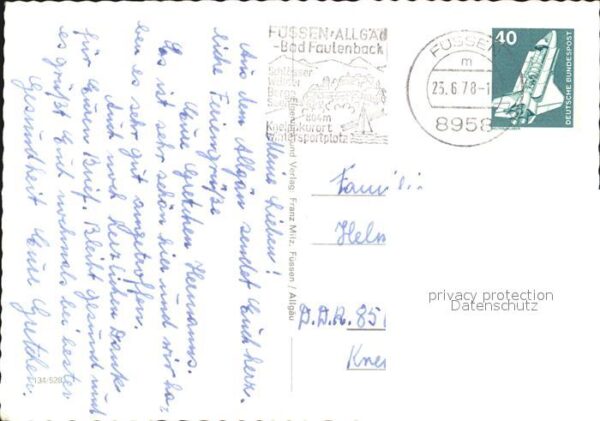 Meine Lieben!
Aus dem Allgäu sendet Euch herz-
liche Feriengrüße
Eure Gretchen Hermanns.
Es ist sehr schön hier und wir ha-
ben es sehr gut angetroffen.
Auch noch herzlichen Dank
für Euern Brief. Bleibt gesund und
es grüßt Euch nochmals bei bester
Gesundheit Eure Gretchen.
134-528
Eigenbild und Verlag: Franz Milz, Füssen / Allgäu
FÜSSEN·ALLGÄU
-Bad Faulenbach
Schlösser
Wälder
Berge
Seen
804m
Kneippkurort
Wintersportplatz
FÜSSEN
m
23.6.78-1
8958
40
DEUTSCHE BUNDESPOST
Famili
Helm
D.D.R. 85
Kne
privacy protection
Datenschutz